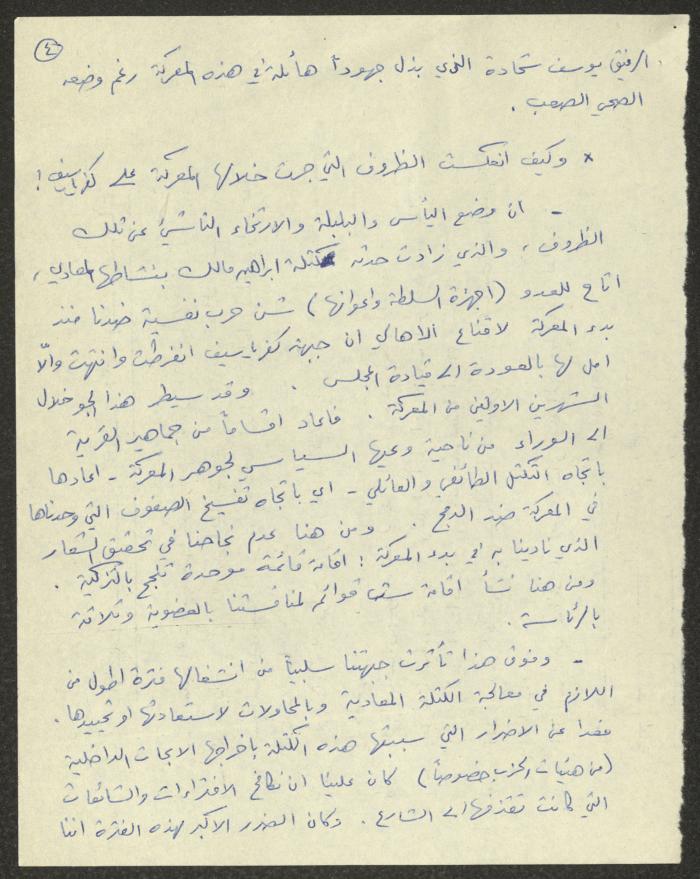 ٤
الرفيق يوسف شحادة الذي بذل جهوداً هائلة في هذه المعركة رغم وضعه
الصحي الصعب .
× وكيف انعكست الظروف التي جرت خلالها المعركة على كفرياسيف !
- ان وضع اليأس والبلبلة والارتخاء الناشئ عن تلك
الظروف ، والذي زادت حدته كتلة ابراهيم مالك بنشاطها المعادي ،
اتاح للعدو (اجهزة السلطة واعوانها) شن حرب نفسية ضدنا منذ
بدء المعركة لاقناع الاهالي ان جبهة كفرياسيف انفرطت وانتهت وألّا
امل لها بالعودة الى قيادة المجلس . وقد سيطر هذا الجو خلال
الشهرين الاولين من المعركة . فاعاد اقساماً من جماهير القرية
الى الوراء من ناحية وعيها السياسي لجوهر المعركة - اعادها
باتجاه التكتل الطائفي والعائلي - اي باتجاه تفسيخ الصفوف التي وحدناها
في المعركة ضد الدمج . ومن هنا عدم نجاحنا في تحقيق الشعار
الذي نادينا به في بدء المعركة : اقامة قائمة موحدة تنجح بالتزكية .
ومن هنا نشأ اقامة ست قوائم لمنافستنا بالعضوية وثلاثة
بالرئاسة .
- وفوق هذا تأثرت جبهتنا سلبياً من انشغالها فترة اطول من
اللازم في معالجة الكتلة المعادية وبالمحاولات لاستعادتها او تحييدها .
فعدا عن الاضرار التي سببتها هذه الكتلة باخراجها الابحاث الداخلية
(من هيئات الحزب خصوصاً) كان علينا ان نكافح الافتراءات والشائعات
التي كانت تقذفها الى الشارع . وكان الضرر الاكبر لهذه الفترة اننا